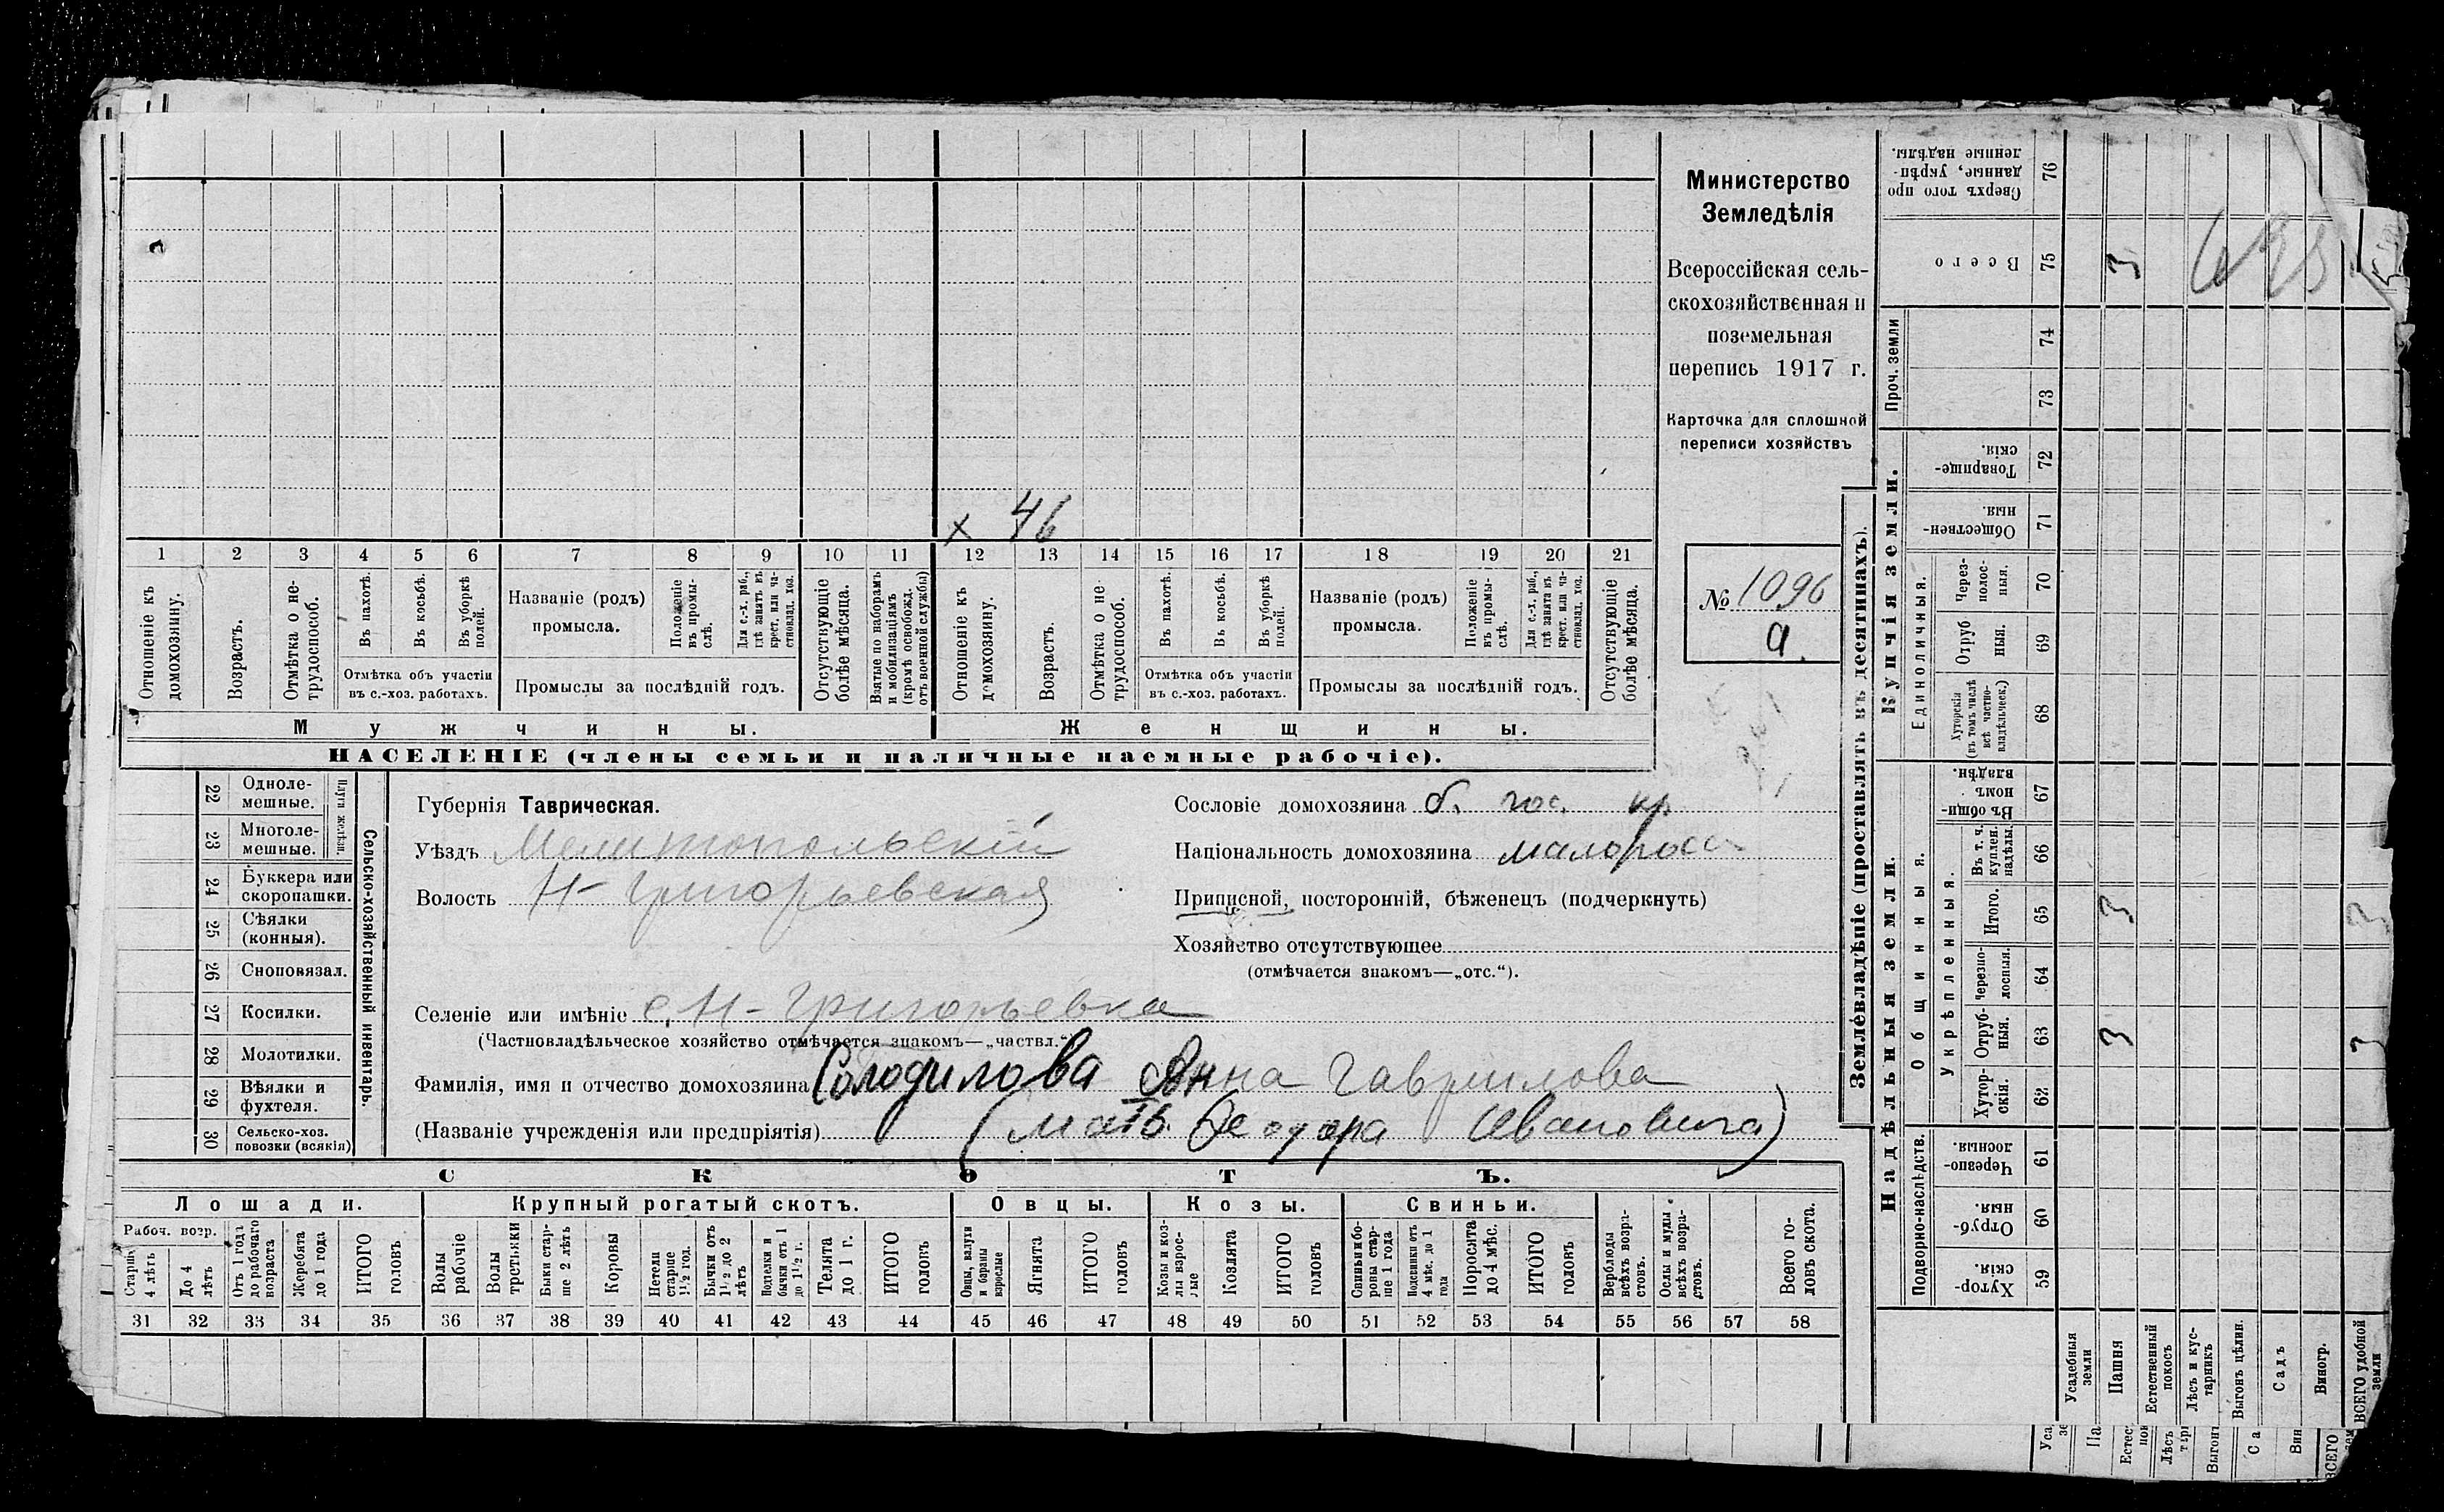 Министерство
Земледѣлія
Всероссійская сель-
скохозяйственная и
поземельная
перепись 1917 г.
Карточка для сплошной
переписи хозяйствъ
№ 1096
а.
х 46
1 2 3 4 5 6 7 8 9 10 11 12 13 14 15 16 17 18 19 20 21
Отношеніе къ домохозяину.
Возрастъ.
Отмѣтка о не-трудоспособ.
Въ пахотѣ.
Въ косьбѣ.
Въ уборкѣ полей.
Отмѣтка объ участіи въ с.-хоз. работахъ.
Названіе (родъ) промысла.
Положеніе въ промы-слѣ.
Для с.-х. раб., гдѣ занятъ въ крест. или ча-стновлад. хоз.
Промыслы за послѣдній годъ.
Отсутствующіе болѣе мѣсяца.
Взятые по наборамъ и мобилизаціямъ (кромѣ освобожд. отъ военной службы)
Отношеніе къ домохозяину.
Возрастъ.
Отмѣтка о не трудоспособ.
Въ пахотѣ.
Въ косьбѣ.
Въ уборкѣ полей.
Отмѣтка объ участіи въ с.-хоз. работахъ.
Названіе (родъ) промысла.
Положеніе въ промы-слѣ.
Для с.-х. раб., гдѣ занята въ крест. или ча-стновлад. хоз.
Промыслы за послѣдній годъ.
Отсутствующіе болѣе мѣсяца.
Мужчины. Женщины.
НАСЕЛЕНІЕ (члены семьи и наличные наемные рабочіе).
22 Одноле-мешные.
23 Многоле-мешные.
Плуги желѣзн.
24 Буккера или скоропашки.
25 Сѣялки (конныя).
26 Сноповязал.
27 Косилки.
28 Молотилки.
29 Вѣялки и фухтеля.
30 Сельско-хоз. повозки (всякія)
Сельско-хозяйственный инвентарь.
Губернія Таврическая.
Уѣздъ Мелитопольскій
Волость Н-Григорьевская
Селеніе или имѣніе с. Н-Григорьевка
(Частновладѣльческое хозяйство отмѣчается знакомъ—„частвл.“
Фамилія, имя и отчество домохозяина Солодилова Анна Гаврилова
(Названіе учрежденія или предпріятія) (мать Феодора Ивановича)
Сословіе домохозяина б. гос. кр.
Національность домохозяина малоросс
Приписной, посторонній, бѣженецъ (подчеркнуть)
Хозяйство отсутствующее
(отмѣчается знакомъ—„отс.“).
СКОТЪ.
Лошади. Крупный рогатый скотъ. Овцы. Козы. Свиньи.
Рабоч. возр.
Старше 4 лѣтъ
До 4 лѣтъ
Отъ 1 года до рабочаго возраста
Жеребята до 1 года
ИТОГО головъ
Волы рабочіе
Волы третьяки
Быки стар-ше 2 лѣтъ
Коровы
Нетели старше 1½ год.
Бычки отъ 1½ до 2 лѣтъ
Подтелки и бычки отъ 1 до 1½ г.
Телята до 1 г.
ИТОГО головъ
Овцы, валухи и бараны взрослые
Ягнята
ИТОГО головъ
Козы и коз-лы взрос-лые
Козлята
ИТОГО головъ
Свиньи и бо-ровы стар-ше 1 года
Подсвинки отъ 4 мѣс. до 1 года
Поросята до 4 мѣс.
ИТОГО головъ
Верблюды всѣхъ возра-стовъ.
Ослы и мулы всѣхъ возра-стовъ.
Всего го-ловъ скота.
31 32 33 34 35 36 37 38 39 40 41 42 43 44 45 46 47 48 49 50 51 52 53 54 55 56 57 58
Землевладѣніе (проставлять въ десятинахъ).
Купчія земли.
Надѣльныя земли.
Сверхъ того про данные, укрѣп-ленные надѣлы. 76
Всего 75 3
Проч. земли 74
73
Товарище-скія. 72
Обществен-ныя. 71
Единоличныя.
Через-полос-ныя. 70
Отруб ныя. 69
Хуторскія (въ томъ числѣ всѣ частно-владѣльческ.) 68
Общинныя.
Въ общи-номъ владѣн. 67
Укрѣпленныя.
Въ т. ч. куплен. надѣлы. 66
Итого. 65 3 3
Черезпо-лосныя. 64
Отруб-ныя. 63 3 3
Хутор-скія. 62
Подворно-наслѣдств.
Черезпо-лосныя 61
Отруб-ныя. 60
Хутор-скія. 59
Усадебныя земли
Пашня
Естественный покосъ
Лѣсъ и кус-тарникъ
Выгонъ цѣлин.
Садъ
Виногр.
ВСЕГО удобной земли